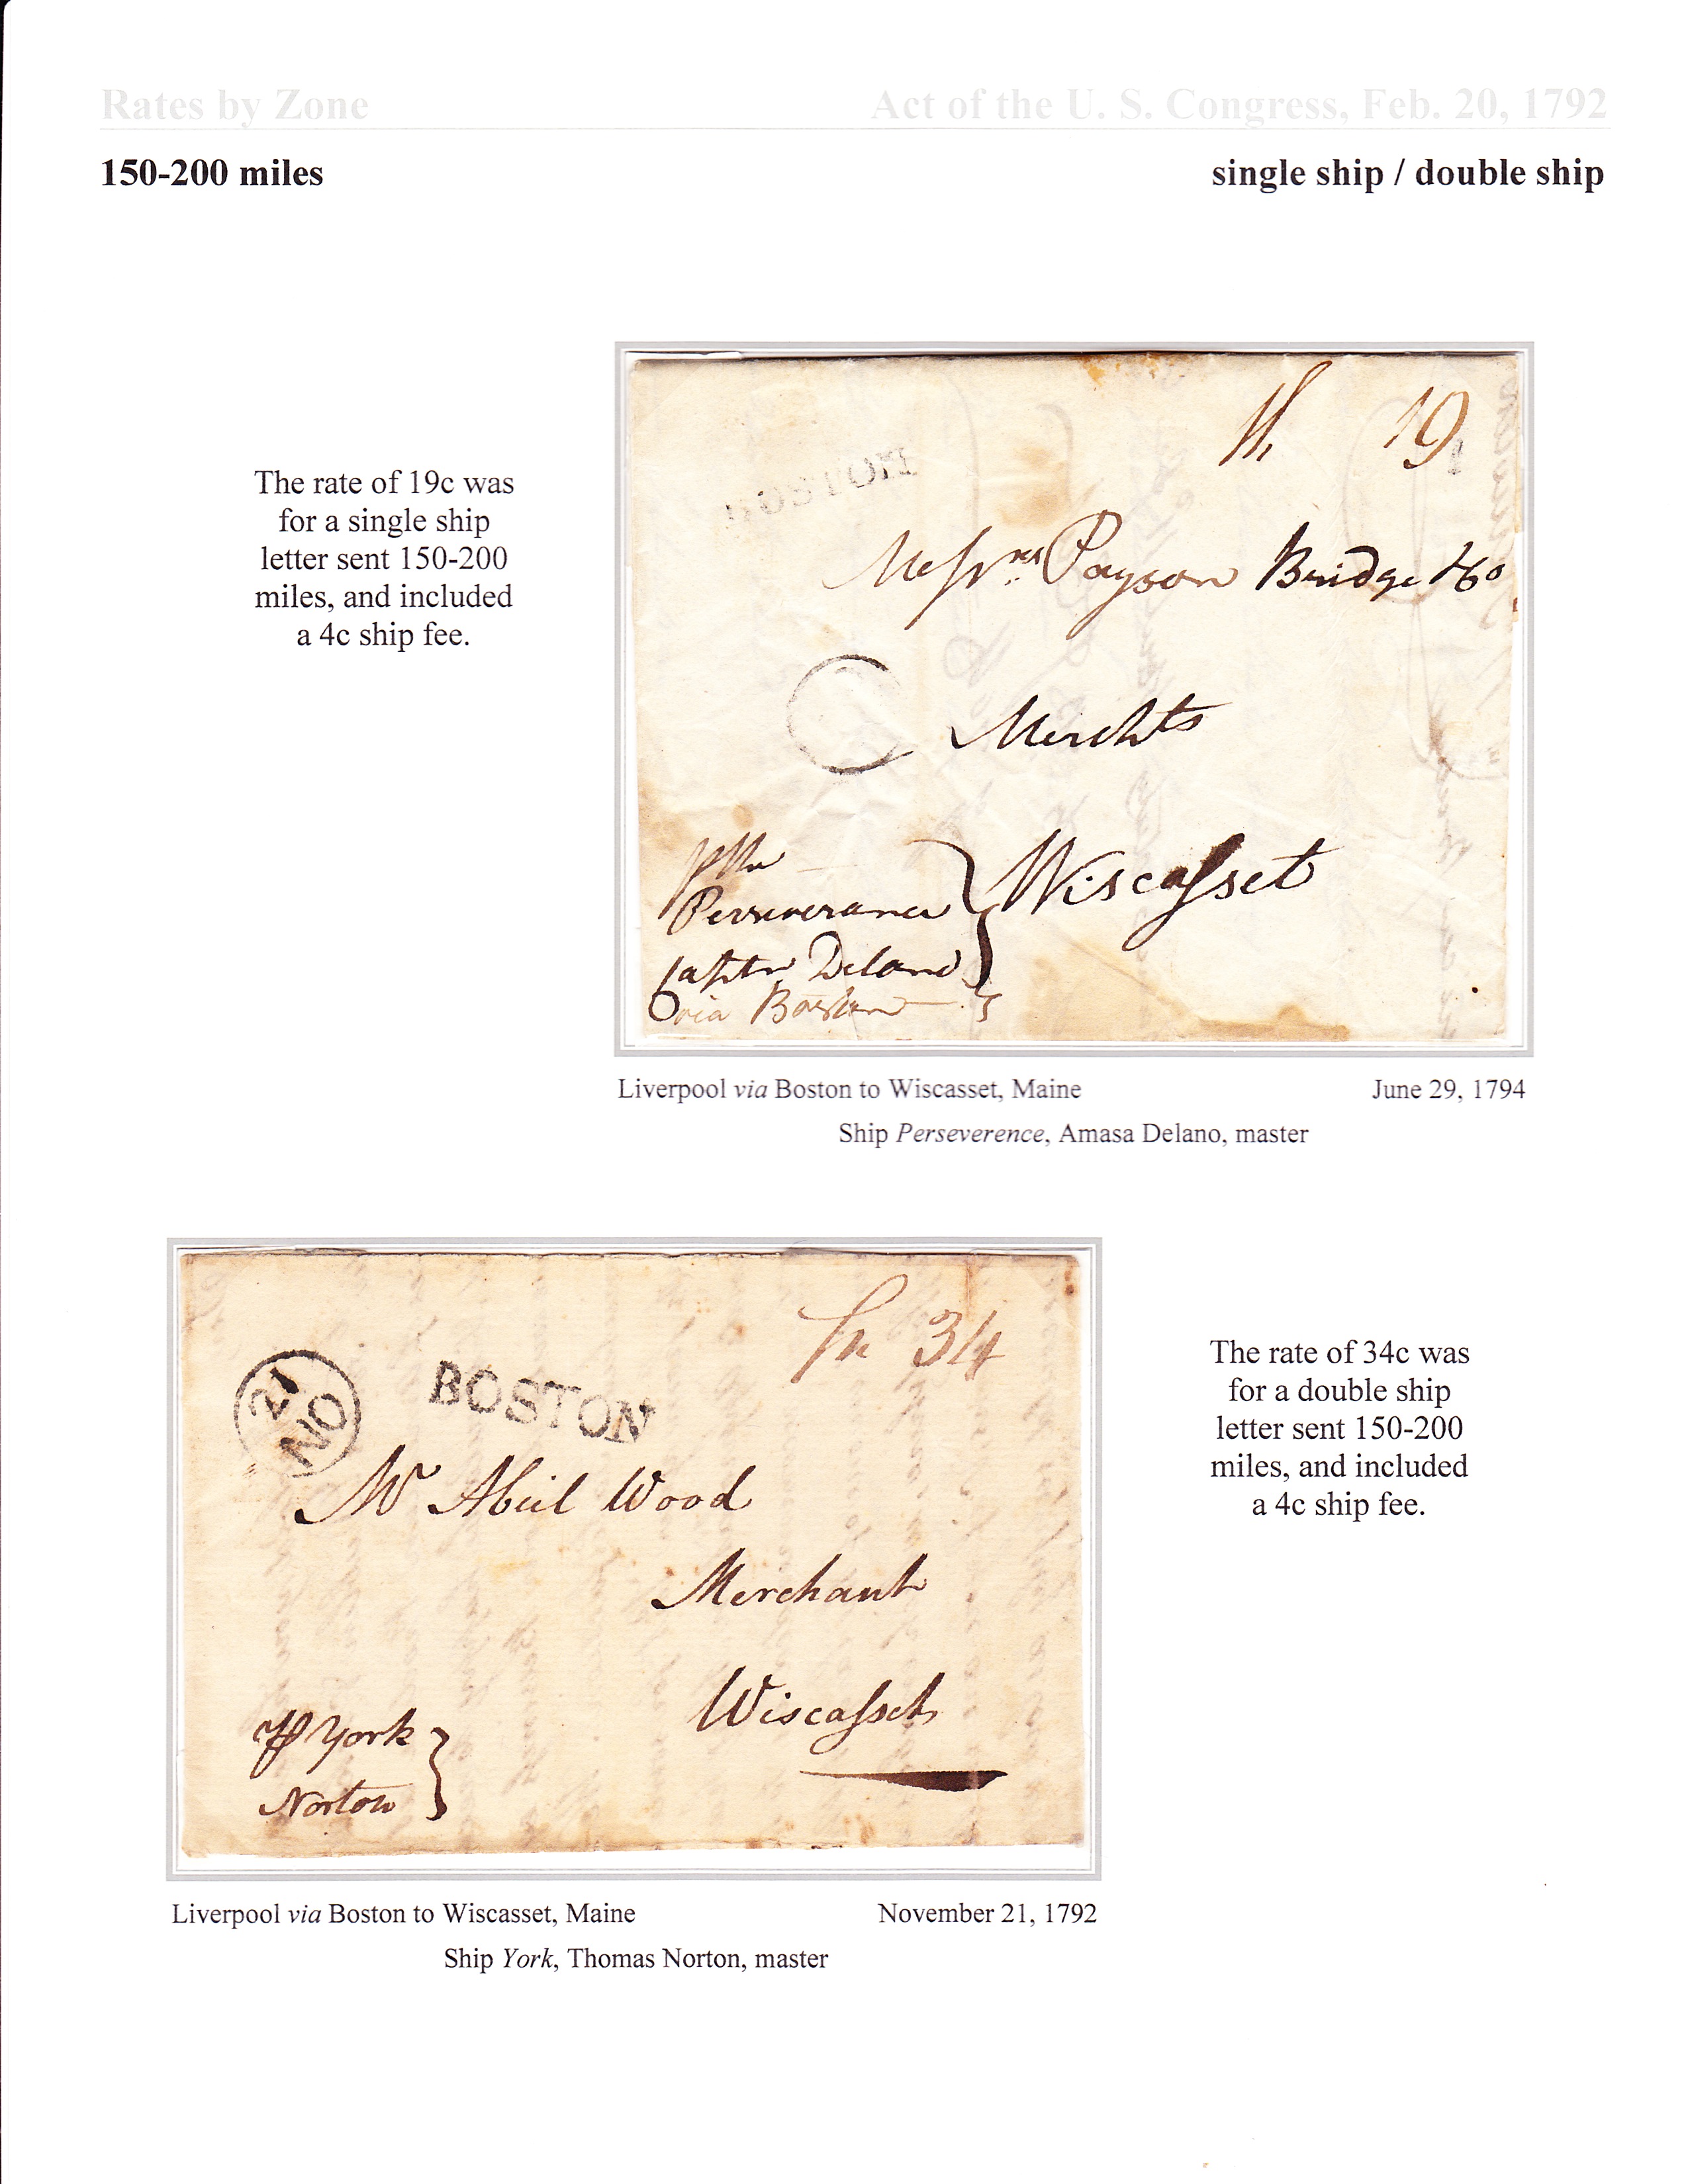 Rates by Zone Act of the U. S. Congress, Feb. 20, 1792
150-200 miles single ship / double ship
The rate of 19c was
for a single ship
letter sent 150-200
miles, and included
a 4c ship fee.
19
BOSTON
Messrs Payson Bridge & Co
Merchts
Wiscasset
Perseverance
Captn Delano
via Boston
Liverpool via Boston to Wiscasset, Maine June 29, 1794
Ship Perseverence, Amasa Delano, master
Sh 34
21
NO
BOSTON
Mr Abiel Wood
Merchant
Wiscasset
York
Norton
The rate of 34c was
for a double ship
letter sent 150-200
miles, and included
a 4c ship fee.
Liverpool via Boston to Wiscasset, Maine November 21, 1792
Ship York, Thomas Norton, master